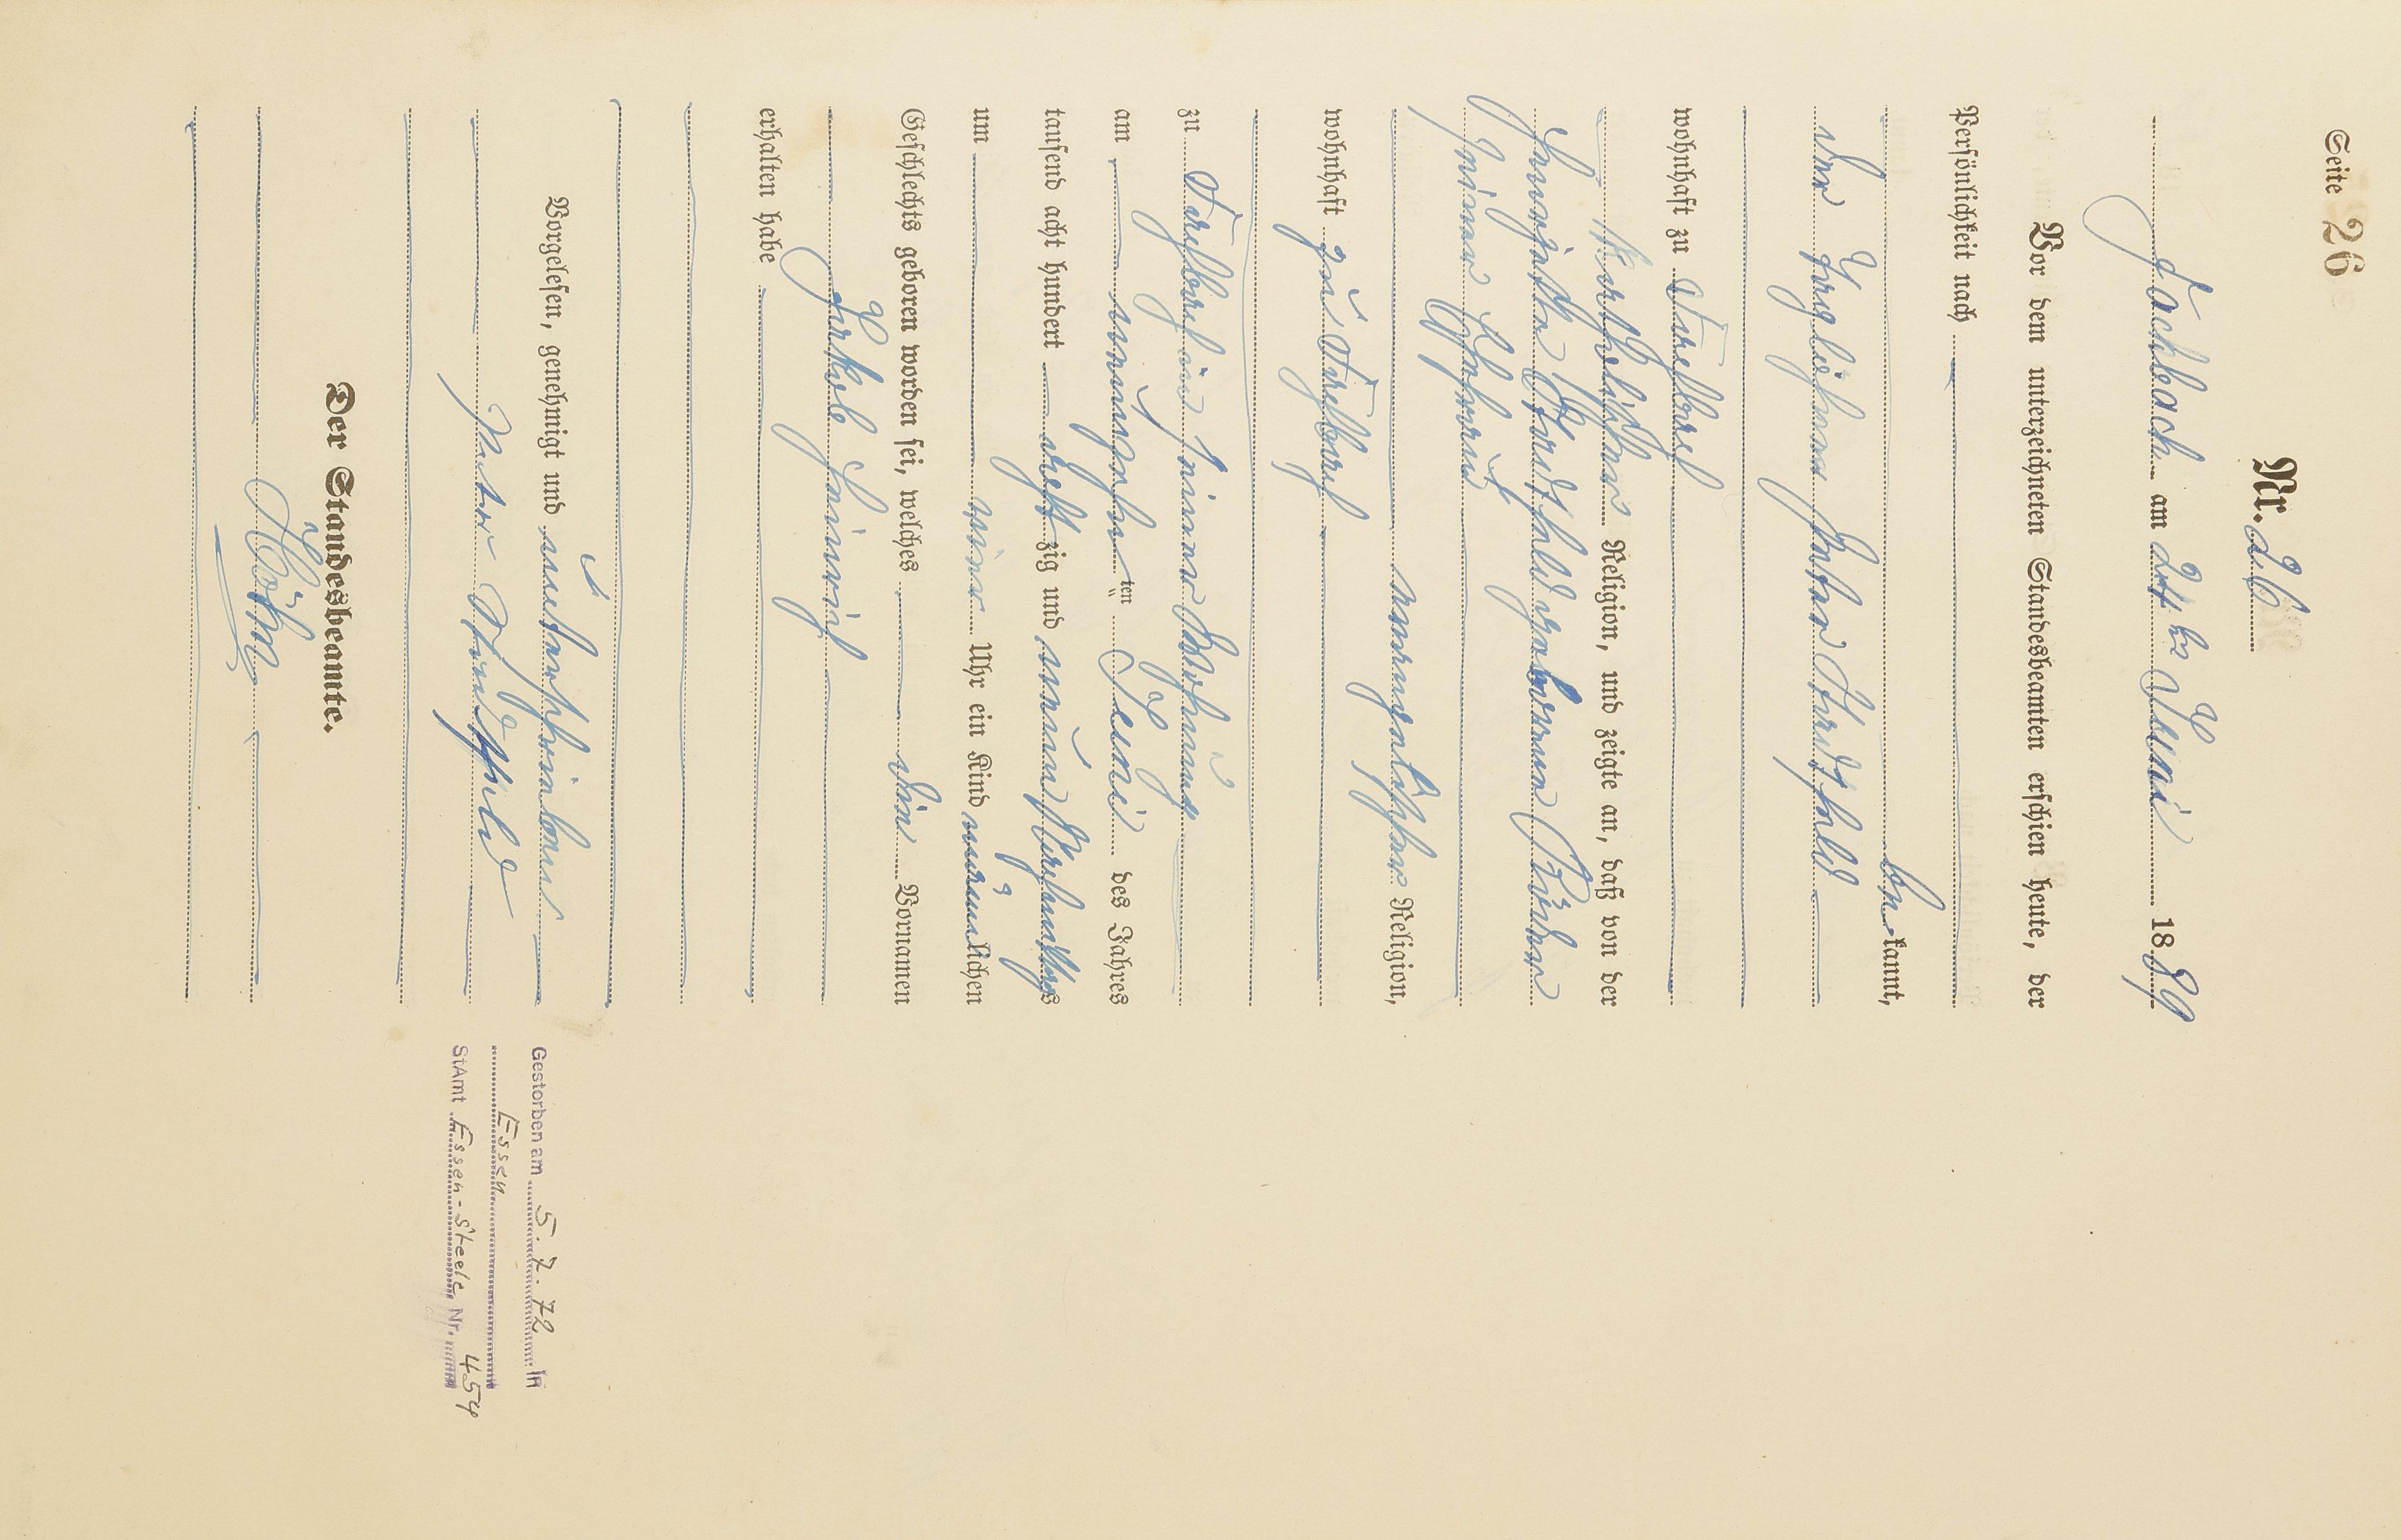 Seite 26
Nr. 26
Fachbach am 24ten Juni 1889
Vor dem unterzeichneten Standesbeamten erschien heute, der
Persönlichkeit nach
be kannt,
der Taglöhner Peter
wohnhaft zu Fachbach
katholischer Religion, und zeigte an, daß von der
geborenen
seiner Ehefrau
evangelischer Religion,
wohnhaft zu Fachbach
zu Fachbach in seiner Wohnung
am neunzehn ten Juni des Jahres
tausend acht hundert acht zig und neun Vormittags
um neun Uhr ein Kind männ lichen
Geschlechts geboren worden sei, welches den Vornamen
Jakob Heinrich
erhalten habe
Vorgelesen, genehmigt und unterschrieben
Peter
Der Standesbeamte.
Gestorben am 5. 7. 72 in
Essen
StAmt Essen-Steele Nr. 454